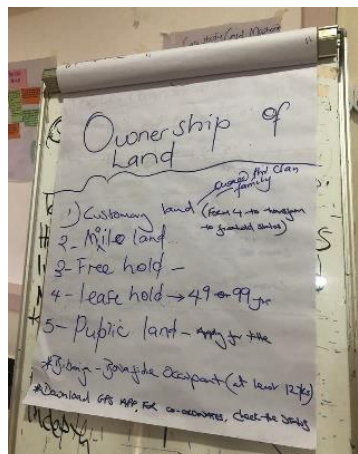 Ownership of
Land
owned thru Clan
family
1) Customary land (Form 4 to transform
to freehold status
2 - Mailo land
3 - Free hold -
4 - lease hold → 49 or 99 yrs
5 - Public land - Apply for title
Bonafide Occupant (at least 12 yrs)
* Download GPS APP, FOR co-ordinates, check the status